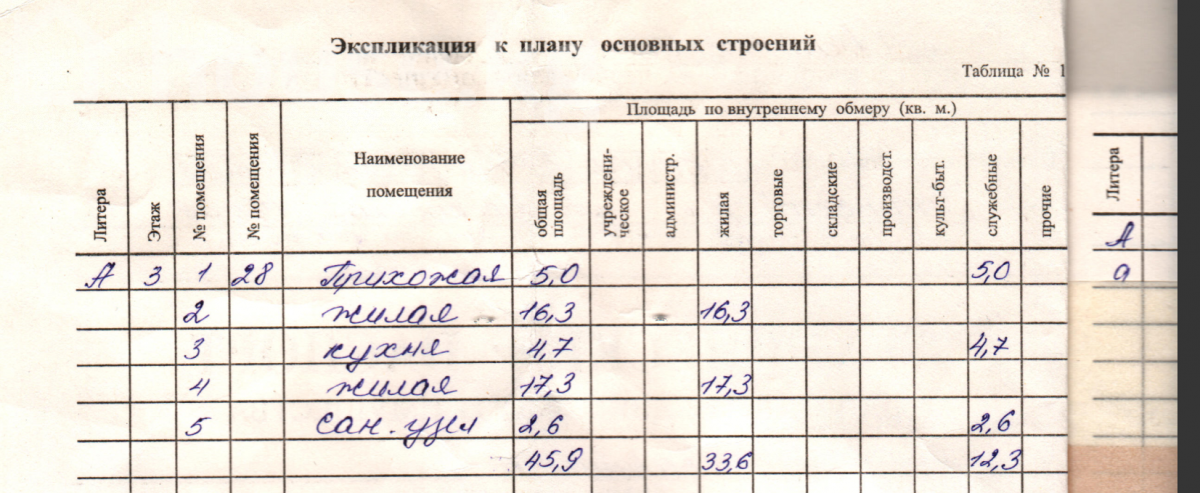 Экспликация к плану основных строений
Таблица № 1
Литера Этаж № помещения № помещения Наименование помещения Площадь по внутреннему обмеру (кв. м.)
общая площадь учреждени-ческое администр. жилая торговые складские производст. культ-быт. служебные прочие
А 3 1 28 Прихожая 5,0 5,0
2 жилая 16,3 16,3
3 кухня 4,7 4,7
4 жилая 17,3 17,3
5 сан. узел 2,6 2,6
45,9 33,6 12,3
Литера
А
а